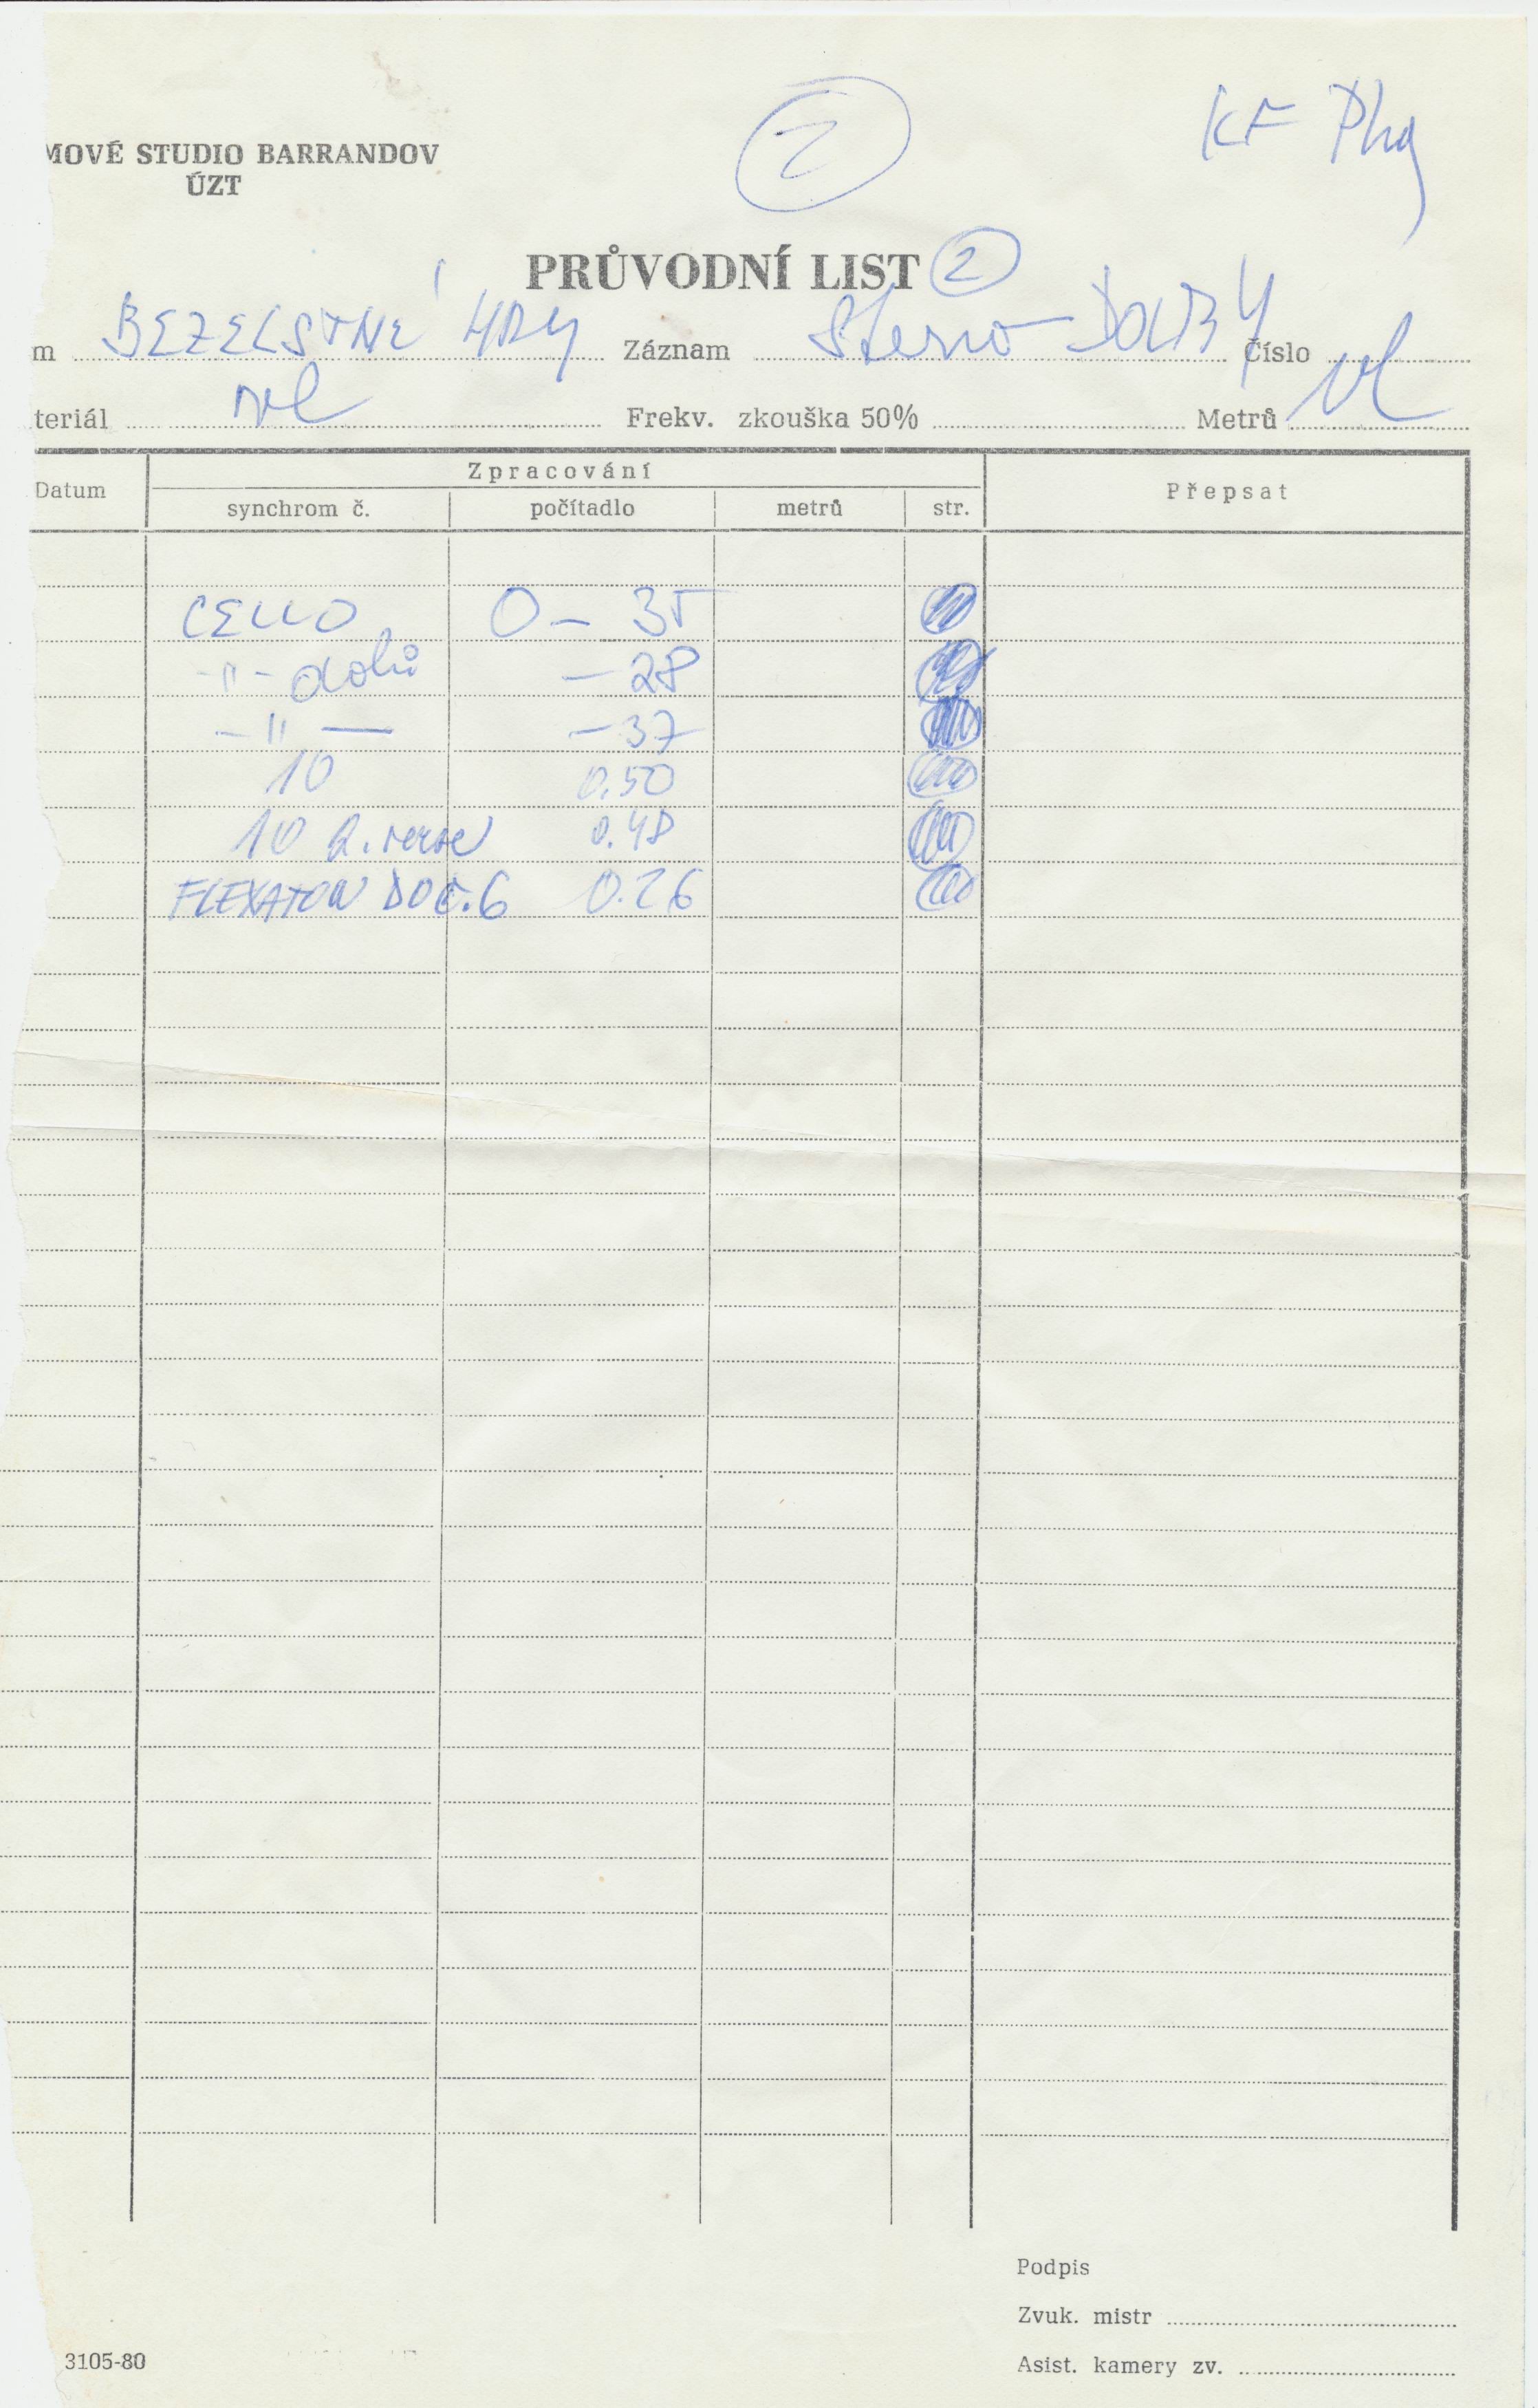 2
KF Phg
MOVÉ STUDIO BARRANDOV
ÚZT
PRŮVODNÍ LIST 2
m BEZELSTNÉ HRY Záznam Stereo - DOLBY Číslo
teriál Frekv. zkouška 50% Metrů
Datum Zpracování Přepsat
synchrom č. počítadlo metrů str.
CELLO 0 - 35
-"- dolů - 28
-"- - 37
10 0.50
10 2. verse 0.48
FLEXATON DOČ.6 0.26
Podpis
Zvuk. mistr
Asist. kamery zv.
3105-80